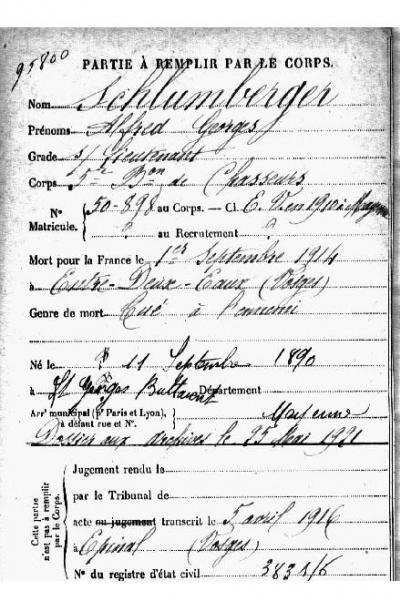 95800
PARTIE À REMPLIR PAR LE CORPS.
Nom Schlumberger
Prénoms Alfred Georges
Grade s/ Lieutenant
Corps 5e Bon de Chasseurs
No Matricule.
50-898 au Corps. — Cl. E. V. en 1910 à
au Recrutement
Mort pour la France le 1er Septembre 1914
à Entre-Deux-Eaux (Vosges)
Genre de mort Tué à l'ennemi
Né le 11 Septembre 1890
à St Georges Buttavent Département
Arrt municipal (pr Paris et Lyon), à défaut rue et No.
Mayenne
Dossier aux archives le 25 Mai 1921
Cette partie n'est pas à remplir par le Corps.
Jugement rendu le
par le Tribunal de
acte ou jugement transcrit le 5 avril 1916
à Epinal (Vosges)
No du registre d'état civil